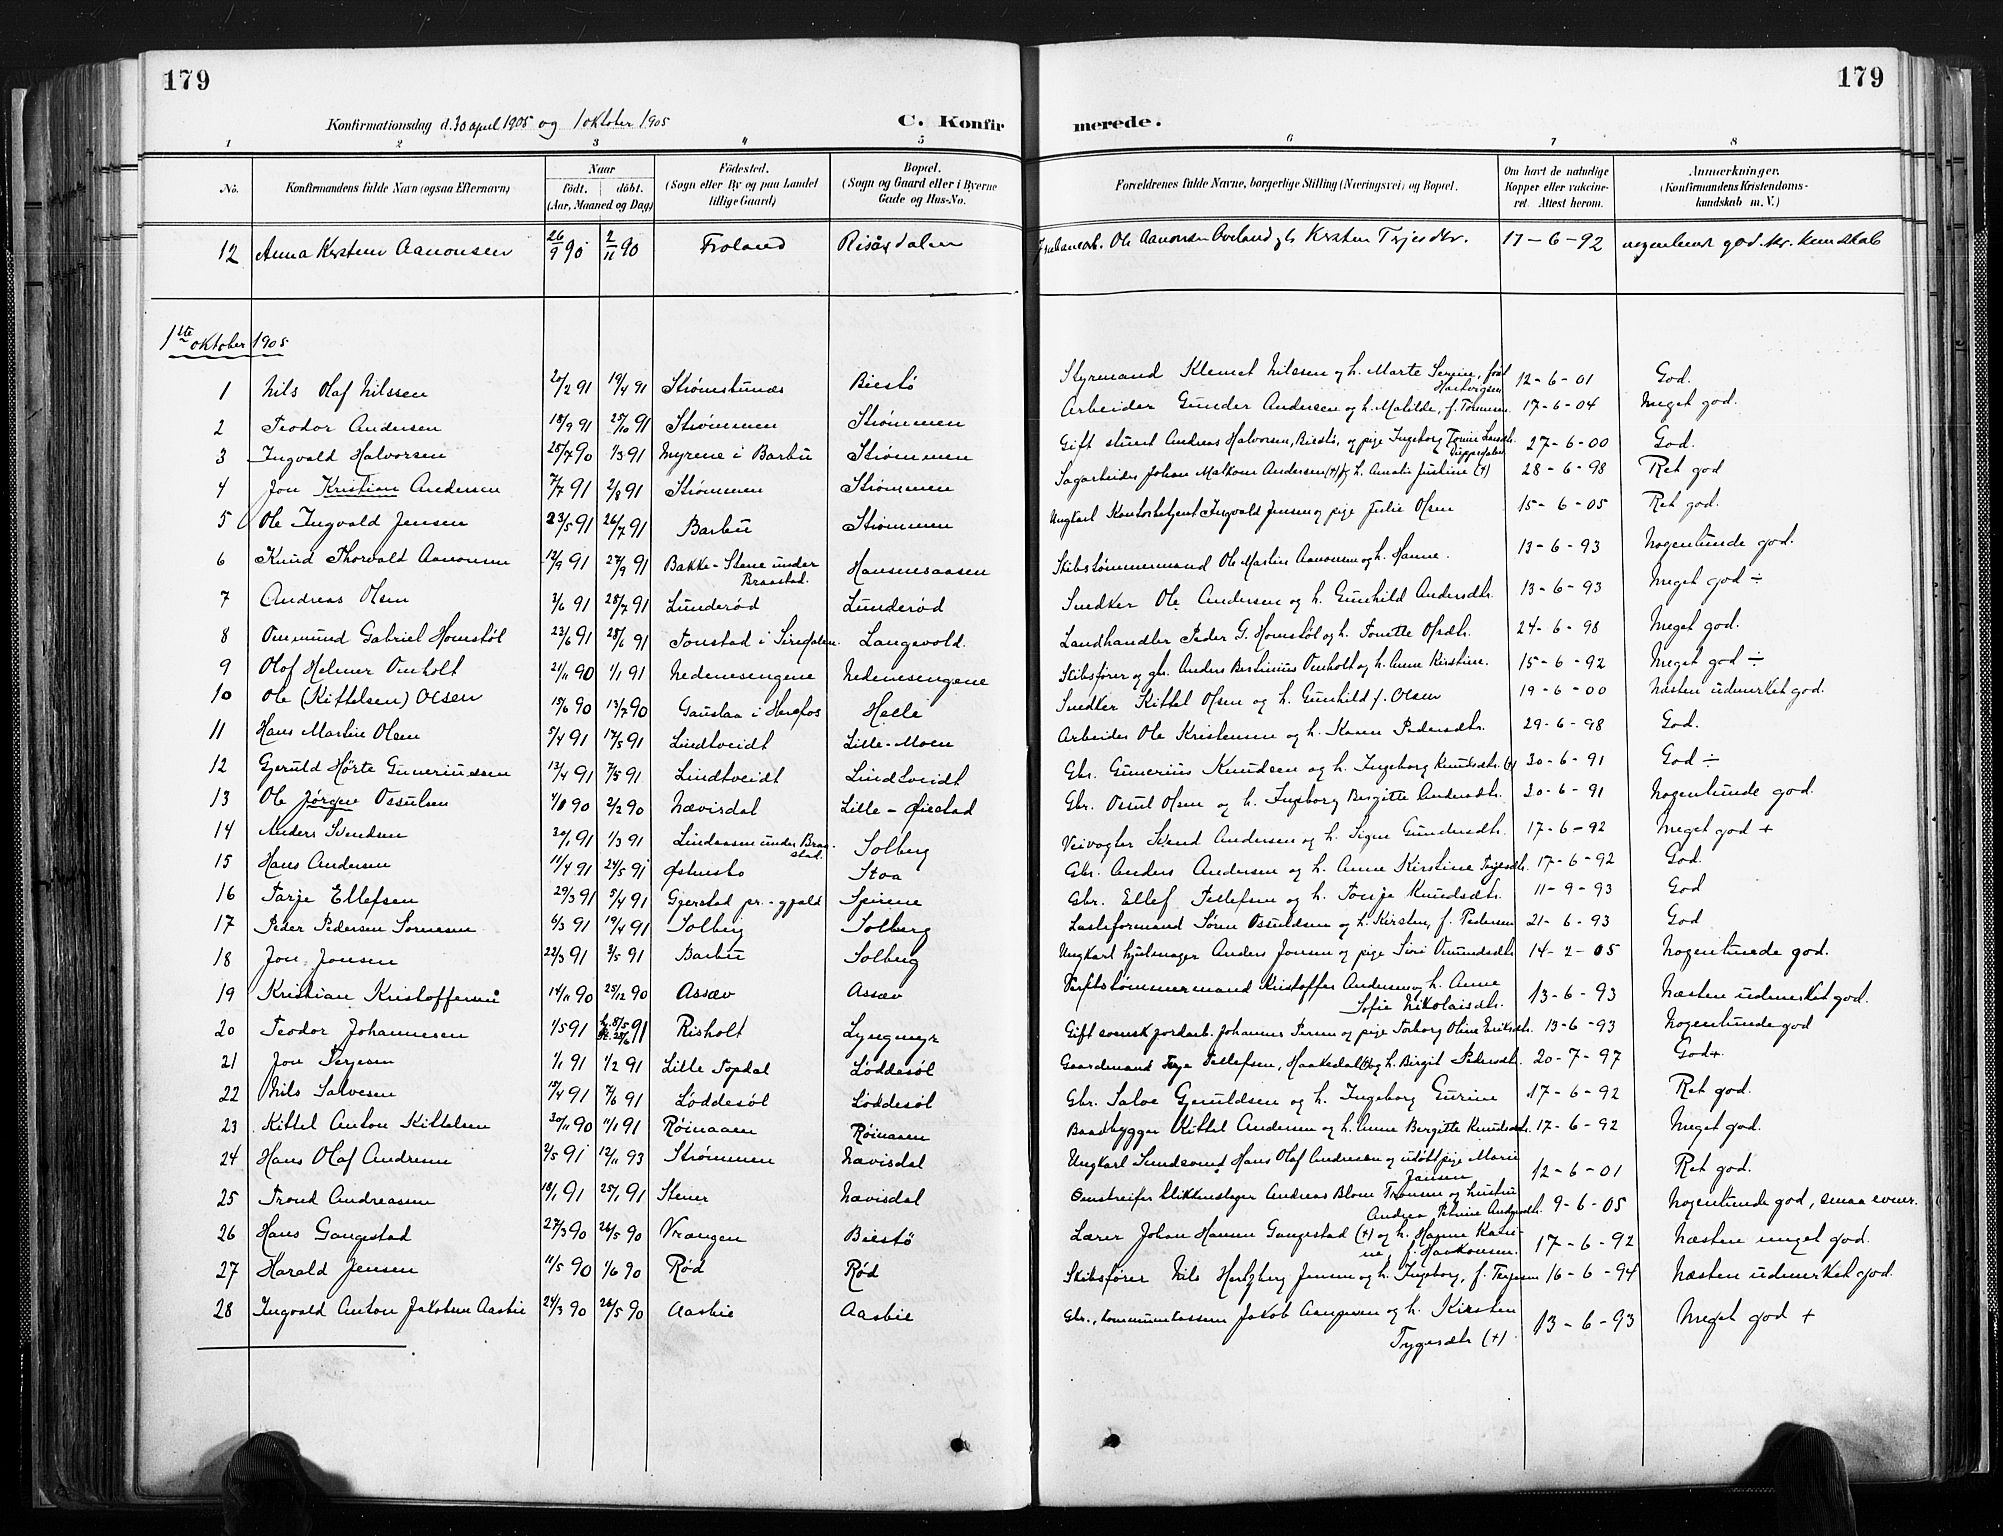 179
179
Konfirmationsdag d. 30 april 1905 og 1 oktober 1905
C. Konfir
merede.
1 2 3 4 5 6 7 8
No. Konfirmandens fulde Navn (ogsaa Efternavn) Naar født. døbt. (Aar, Maaned og Dag) Fødested. (Sogn eller By og paa Landet tillige Gaard) Bopæl. (Sogn og Gaard eller i Byerne Gade og Hus-No. Forældrenes fulde Navne, borgerlige Stilling (Næringsvei) og Bopæl. Om havt de naturlige Kopper eller vaccineret. Attest herom. Anmærkninger. (Konfirmandens Kristendomskundskab m. V.)
12 Anna Kirstine Aanonsen 26/9 90 2/11 90 Froland Risøxdalen Ole Aanonsen Kirsten Terjesdtr. 17-6-92 nogenlunde god kr. kundskab
1ste oktober 1905
1 Nils Olaf Nilssen 20/2 91 19/4 91 Strømsbunæs Biestø Styrmand Klemet Nilssen og h. Marte Serine, født Hartvigsen 12-6-01 God.
2 Teodor Andersen 18/9 91 25/10 91 Strømmen Strømmen Arbeider Gunder Andersen og h. Matilde, f. Tørressen 17-6-04 Meget god.
3 Ingvald Halvorsen 28/7 90 1/3 91 Myrene i Barbu Strømmen Gift Andreas Halvorsen, Biestø, og pige Ingeborg 27-6-00 God.
4 Jon Kristian Andersen 7/7 91 2/8 91 Strømmen Strømmen Sagarbeider Johan Malkom Andersen (+) og h. Amalie Justine (+) 28-6-98 Ret god
5 Ole Ingvald Jensen 23/5 91 26/7 91 Barbu Strømmen Ungkarl Kontorbetjent Ingvald Jensen og pige Julie Olsen 15-6-05 Ret god.
6 Knud Thorvald Aanonsen 12/9 91 27/9 91 Bakke-Stene under Braastad. Hansensaasen Skibstømmermand Ole Martin Aanonsen og h. Hanne. 13-6-93 Nogenlunde god.
7 Andreas Olsen 3/6 91 28/7 91 Lunderød Lunderød Snedker Ole Andersen og h. Gunhild Andersdtr. 13-6-93 Meget god ÷
8 Ommund Gabriel Homstøl 23/6 91 28/6 91 Tonstad i Siredalen. Langevold. Landhandler Peder G. Homstøl og h. Tonette Olsdtr. 24-6-98 Meget god.
9 Olaf Helmer Omholt 21/11 90 1/1 91 Nedenesengene Nedenesengene Skibsfører og gbr. Anders Bertinius Omholt og h. Anne Kirstine. 15-6-92 Meget god ÷
10 Ole (Kittelsen) Olsen 15/6 90 13/7 90 Gauslaa i Herefos Helle Snedker Kittel Olsen og h. Gunhild f. Olsen 19-6-00 Næsten udmerket god.
11 Hans Martin Olsen 5/4 91 17/5 91 Lindtveidt Lille-Moen Arbeider Ole Kristensen og h. Karen Pedersdtr. 29-6-98 God.
12 Gjeruld Hørte Gunerius​sen 13/4 91 7/5 91 Lindtveidt Lindtveidt Gbr. Gunerius Knudsen og h. Ingeborg Knudsdtr. 20-6-91 God ÷
13 Ole Jørgen Ossulsen 90 2/2 90 Nævisdal Lille-Øiestad Gbr. Ossul Olsen og h. Ingeborg Birgitte Andersdtr. 20-6-91 Nogenlunde god.
14 Anders Svendsen 20/1 91 1/3 91 Lindaasen under Braastad. Solberg Veivogter Svend Andersen og h. Signe Gundersdtr. 17-6-92 Meget god +
15 Hans Andersen 11/4 91 24/5 91 Østensbo Stoa Gbr. Anders Andersen og h. Anne Kirstine Terjesdtr. 17-6-92 God.
16 Tarje Ellefsen 29/3 91 5/4 91 Gjerstad pr.-gjeld Spirene Gbr. Ellef Tellefsen og h. Tonje Knudsdtr. 11-9-93 God
17 Peder Pedersen Sørensen 6/3 91 19/4 91 Solberg Solberg Lasteformand Søren Ossuldsen og h. Kirsten, f. Pedersen 21-6-93 God
18 Jon Jonsen 22/3 91 3/5 91 Barbu Solberg Ungkarl hjulmager Anders Jonsen og pige Siri Omundsdtr. 14-2-05 Nogenlunde god.
19 Kristian Kristoffersen 14/11 90 25/12 90 Assæv Assæv Verftstømmermand Kristoffer Andersen og h. Anne Sofie Nikolaisdtr. 13-6-93 Næsten udmerket god.
20 Teodor Johannesen 1/5 91 91 Risholt Lyngmyr Gift svensk jordarb. Johannes og pige Torborg Oline Eriksdtr. 13-6-93 Nogenlunde god
21 Jon Terjesen 1/1 91 1/2 91 Lille Topdal Løddesøl Gaardmand Terje Tellefsen, Haakedal og h. Birgit Pedersdtr. 20-7-97 God+
22 Nils Salvesen 15/4 91 7/6 91 Løddesøl Løddesøl Gbr. Salve Gjeruldsen og h. Ingeborg Gurine 17-6-92 Ret god.
23 Kittel Anton Kittelsen 30/11 90 11/1 91 Røinaasen Røinaasen Baadbygger Kittel Andersen og h. Anne Bergitte Knudsdtr. 17-6-92 Meget god.
24 Hans Olaf Andresen 2/5 91 12/11 93 Strømmen Nævisdal Ungkarl Hans Olaf Andresen og pige Marie Jansen 12-6-01 Ret god.
25 Trond Andreasen 18/1 91 25/1 91 Stener Nævisdal Omstreifer blikkenslager Andreas Blom Tronsen og hustru Andrea Petrine 9-6-05 Nogenlunde god, smaa evner.
26 Hans Gangestad 27/3 90 26/5 90 Vrængen Biestø Lærer Johan Hansen Gangestad (+) og h. Hanne Karine, f. Haakonsen. 17-6-92 Næsten meget god.
27 Harald Jensen 11/5 90 1/6 90 Rød Rød Skibsfører Nils Hertzberg Jensen og h. Ingeborg, f. Terjesen 16-6-94 Næsten udmerket god.
28 Ingvald Anton Jakobsen Aasbie 24/3 90 26/5 90 Aasbie Aasbie Gbr., kommunekasserer Jakob og h. Kirsten Trygesdtr (+). 13-6-93 Meget god +